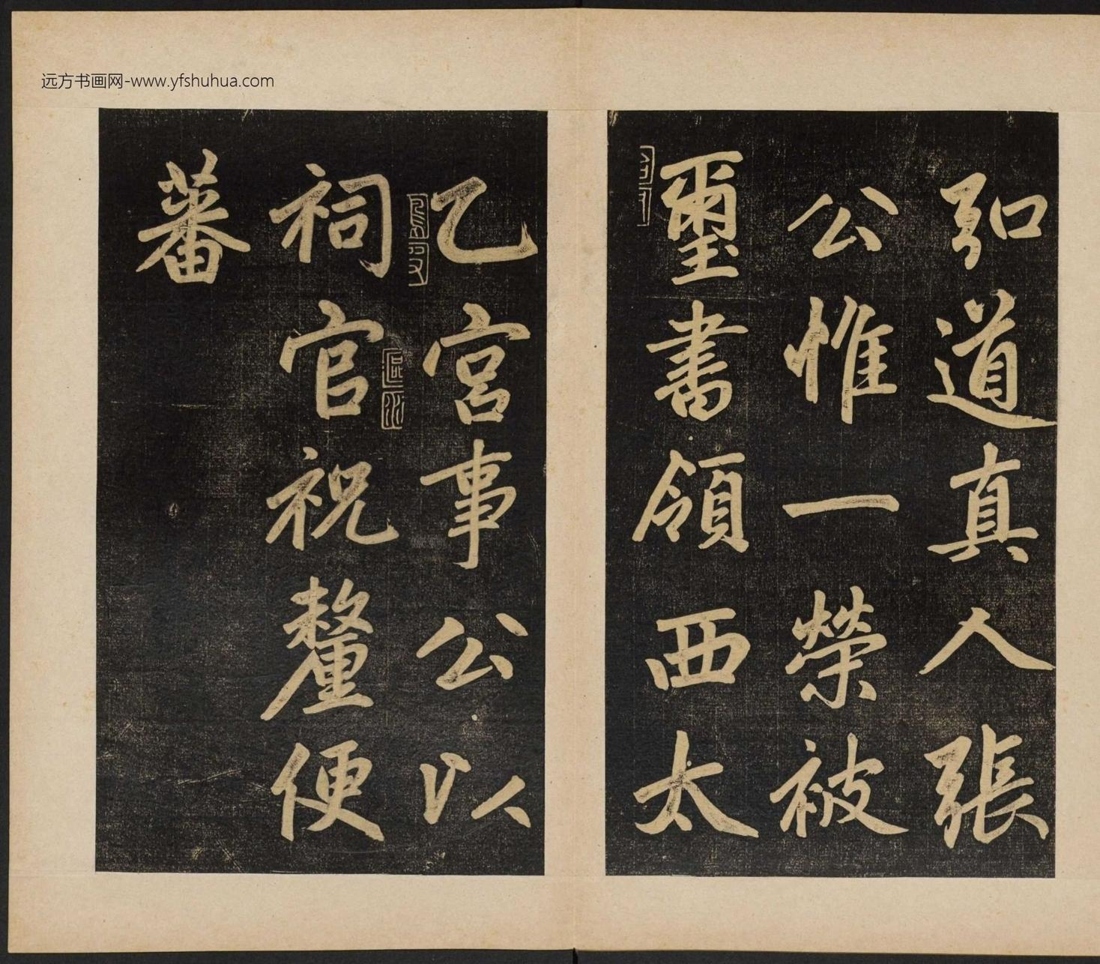 远方书画网-www.yfshuhua.com
弘道真人張
公惟一榮被
璽書領西太
乙宮事公以
祠官祝釐便
蕃